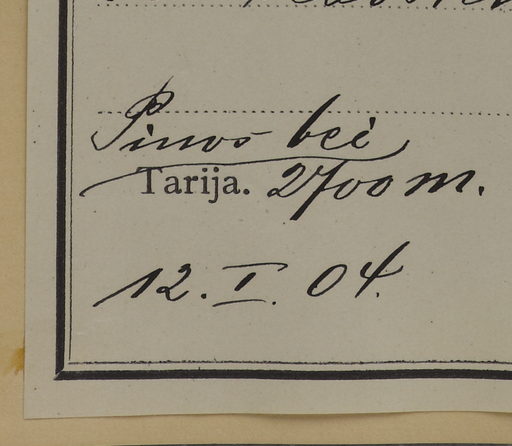 Pinos bei
Tarija. 2700 m.
12. I. 04.